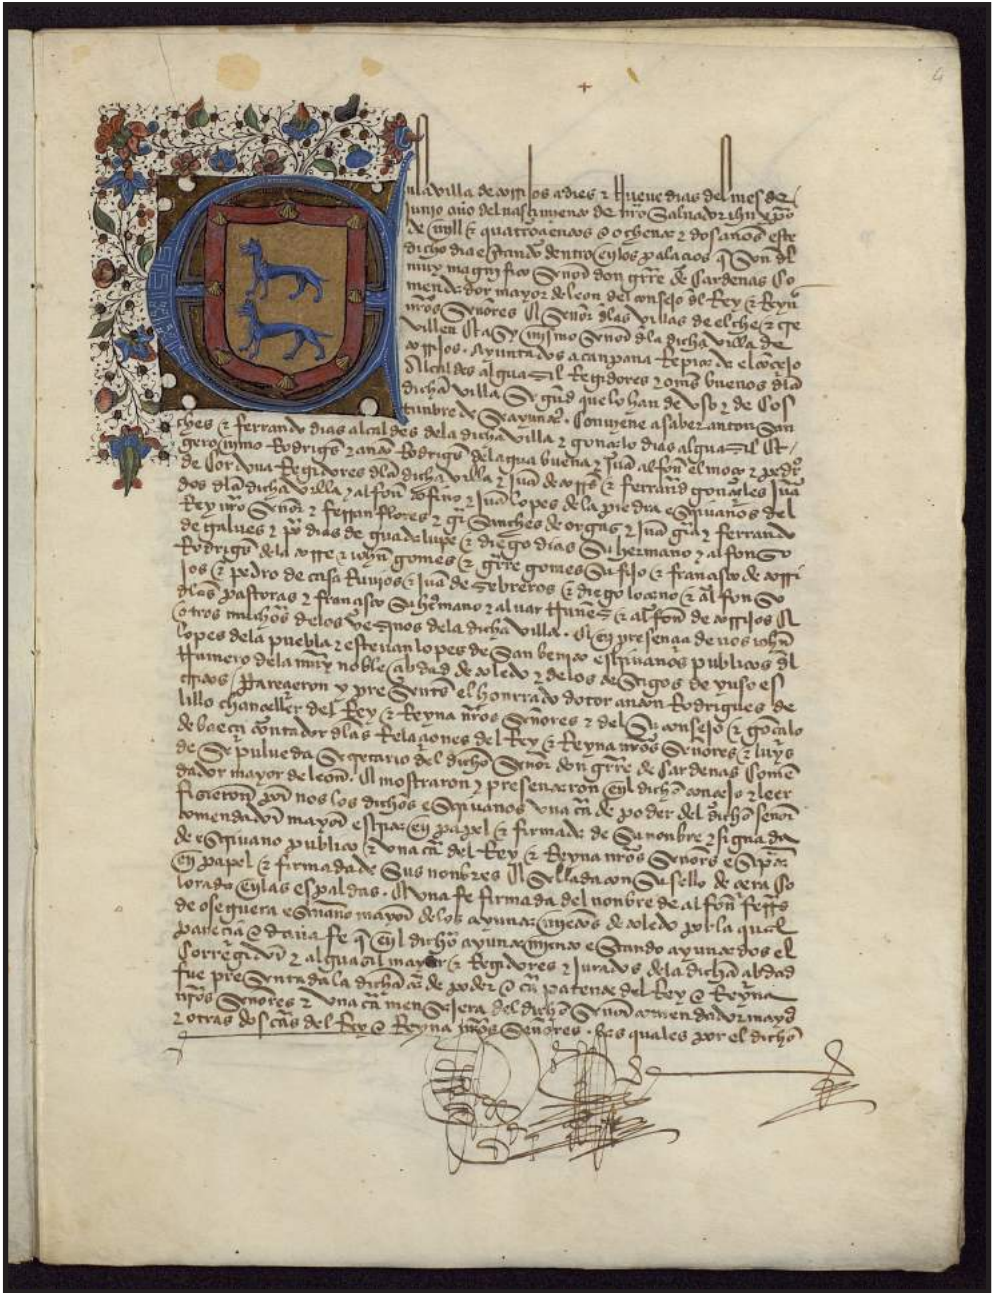 4
En la villa de torrijos a dies & nueve dias del mes de
junio año del nasçimiento de nro Salvador ihu xpo
de mill & quatroçientos & ochenta & dos años este
dicho dia estando dentro en los palaçios q son del
muy magnifico Señor don grre de Cardenas Co
mendador mayor de leon del consejo del Rey & Reyna
nros Señores Señor dlas villas de elche & cre
villen & asy mismo Señor dla dicha villa de
torrijos. Ayuntados a canpana Repicada el conçejo
Alcaldes alguasil Regidores & omes buenos dla
dicha villa Segund que lo han de vso & de cos
tunbre de Se ayuntar. Conviene a saber anton San
ches & ferrando dias alcaldes de la dicha villa & gonçalo dias alguasil &
geronimo Rodrigs & anton Rodrigs del agua buena & Juan alfon el moço & pedro
de Cordoua Regidores dla dicha villa & Juan de torrs & ferrand gonçales Jura
dos dla dicha villa & alfon cofino & Juan lopes de la piedra escriuanos del
Rey nro Señor & ferran flores & gr Sanches de orgas & Juan gra & ferrando
de galues & po dias de guadalupe & diego dias Su hermano & alfonso
Rodrigs de la torre & iohn gomes & grre gomes Su fijo & françisco de torri
jos & pedro de casa Ruuios & Juan de Zebreros & diego loçano & alfonso
dlas pastoras & françisco Su hermano & aluar Nunes & alfon de torrijos &
otros muchos de los vesinos dela dicha villa. en presençia de nos iohn
lopes dela puebla & esteuan lopes de San benito escriuanos publicos dl
Numero dela muy noble çibdad de toledo & de los testigos de yuso es
criptos Paresçieron y presentes el honrrado dotor anton Rodrigues de
lillo chançeller del Rey & Reyna nros Señores & del Su consejo & gonçalo
de baeça contador dlas Relaçiones del Rey & Reyna nros Señores & luys
de Sepulueda Secretario del dicho Señor don grre de Cardenas Comen
dador mayor de leon. mostraron & presentaron en el dicho conçejo & leer
fisieron por nos los dichos escriuanos vna ca de poder del dicho señor
comendador mayor escripta en papel & firmada de Su nonbre & signada
de escriuano publico & vna ca del Rey & Reyna nros Señors escripta
en papel & firmada de Sus nonbres & Sellada con Su sello de çera Co
lorada en las espaldas. vna fe firmada del nonbre de alfon ferrs
de oseguera escriuano mayor de los ayuntamientos de toledo por la qual
pareçia & daua fe q en el dicho ayuntamiento estando ayuntados el
Corregidor & alguasil mayor & Regidores & Jurados dela dicha çibdad
fue presentada la dicha ca de poder & ca patente del Rey & Reyna
nros Senores & vna ca mensajera del dicho Señor comendador mayor
& otras dos cas del Rey & Reyna nros Señores. los quales por el dicho